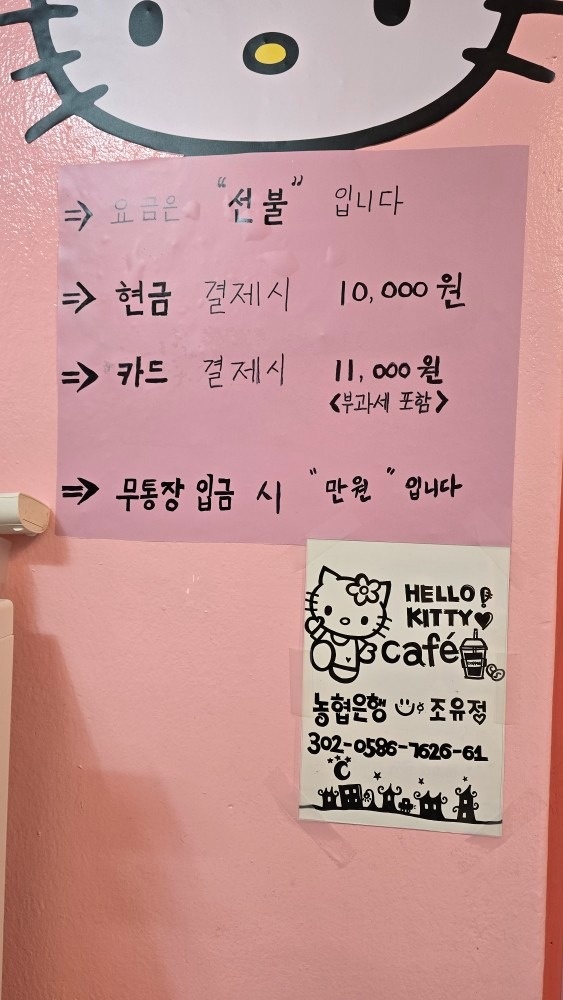 ⇒ 요금은 "선불" 입니다
⇒ 현금 결제시 10,000원
⇒ 카드 결제시 11,000원
<부과세 포함>
⇒ 무통장 입금 시 "만원" 입니다
HELLO
KITTY♥
café
농협은행 조유정
302-0586-7626-61